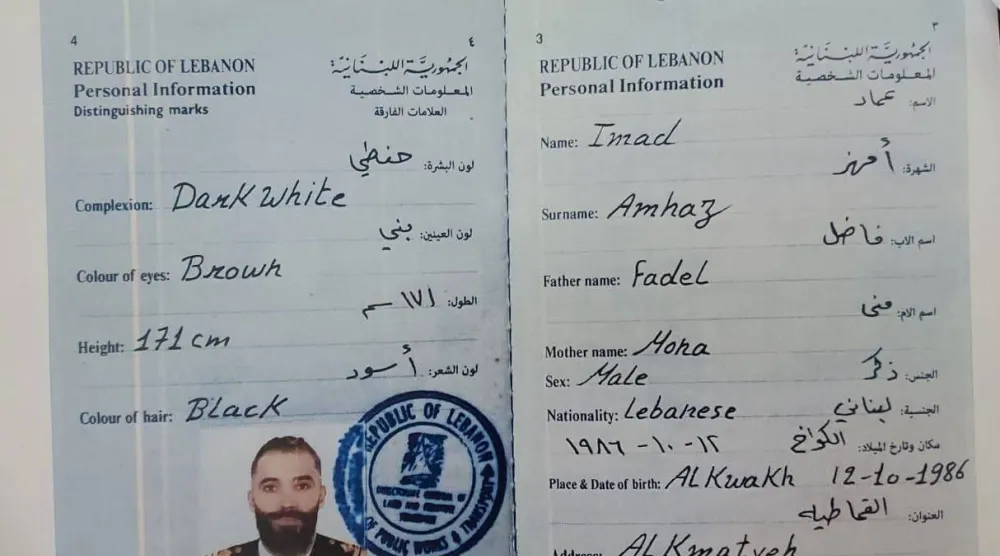 4
٤
REPUBLIC OF LEBANON
الجمهوريّة اللبنَانيّة
Personal Information
المعلومات الشخصية
Distinguishing marks
العلامات الفارقة
لون البشرة: حنطي
Complexion: Dark White
لون العينين: بني
Colour of eyes: Brown
الطول: ١٧١ سم
Height: 171 cm
لون الشعر: أسود
Colour of hair: Black
REPUBLIC OF LEBANON
OF PUBLIC WORKS & TRANSPORT
3
٣
REPUBLIC OF LEBANON
الجمهوريّة اللبنَانيّة
Personal Information
المعلومات الشخصية
الاسم: عماد
Name: Imad
الشهرة: أمهز
Surname: Amhaz
اسم الاب: فاضل
Father name: Fadel
اسم الام: منى
Mother name: Mona
Sex: Male
الجنس: ذكر
Nationality: Lebanese
الجنسية: لبناني
مكان وتارخ الميلاد: الكواخ ١٢-١٠-١٩٨٦
Place & Date of birth: AL Kwakh 12-10-1986
العنوان: القماطيه
Address: AL Kmatyeh